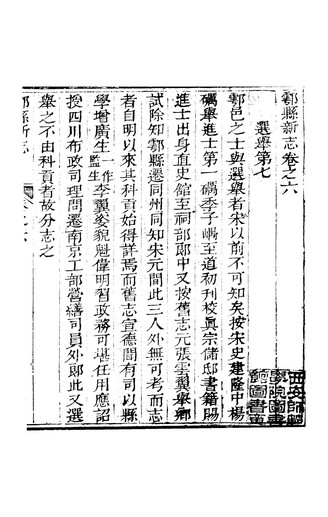 鄠縣新志卷之六
選舉第七
鄠邑之士與選舉者宋以前不可知矣按宋史建隆中楊
礪舉進士第一礪季子嵎至道初刊校眞宗儲邸書籍賜
進士出身直史館至祠部郎中又按舊志元張雲翼舉鄉
試除知鄠縣遷同州同知宋元間此三人外無可考而志
者自明以來其科貢始得詳焉而舊志宣德間有司以縣
學增廣生一作監生李翼姿貌魁偉明習政務可堪任用應詔
授四川布政司理問遷南京工部營繕司員外郎此又選
舉之不由科貢者故分志之
鄠縣新志
卷之六